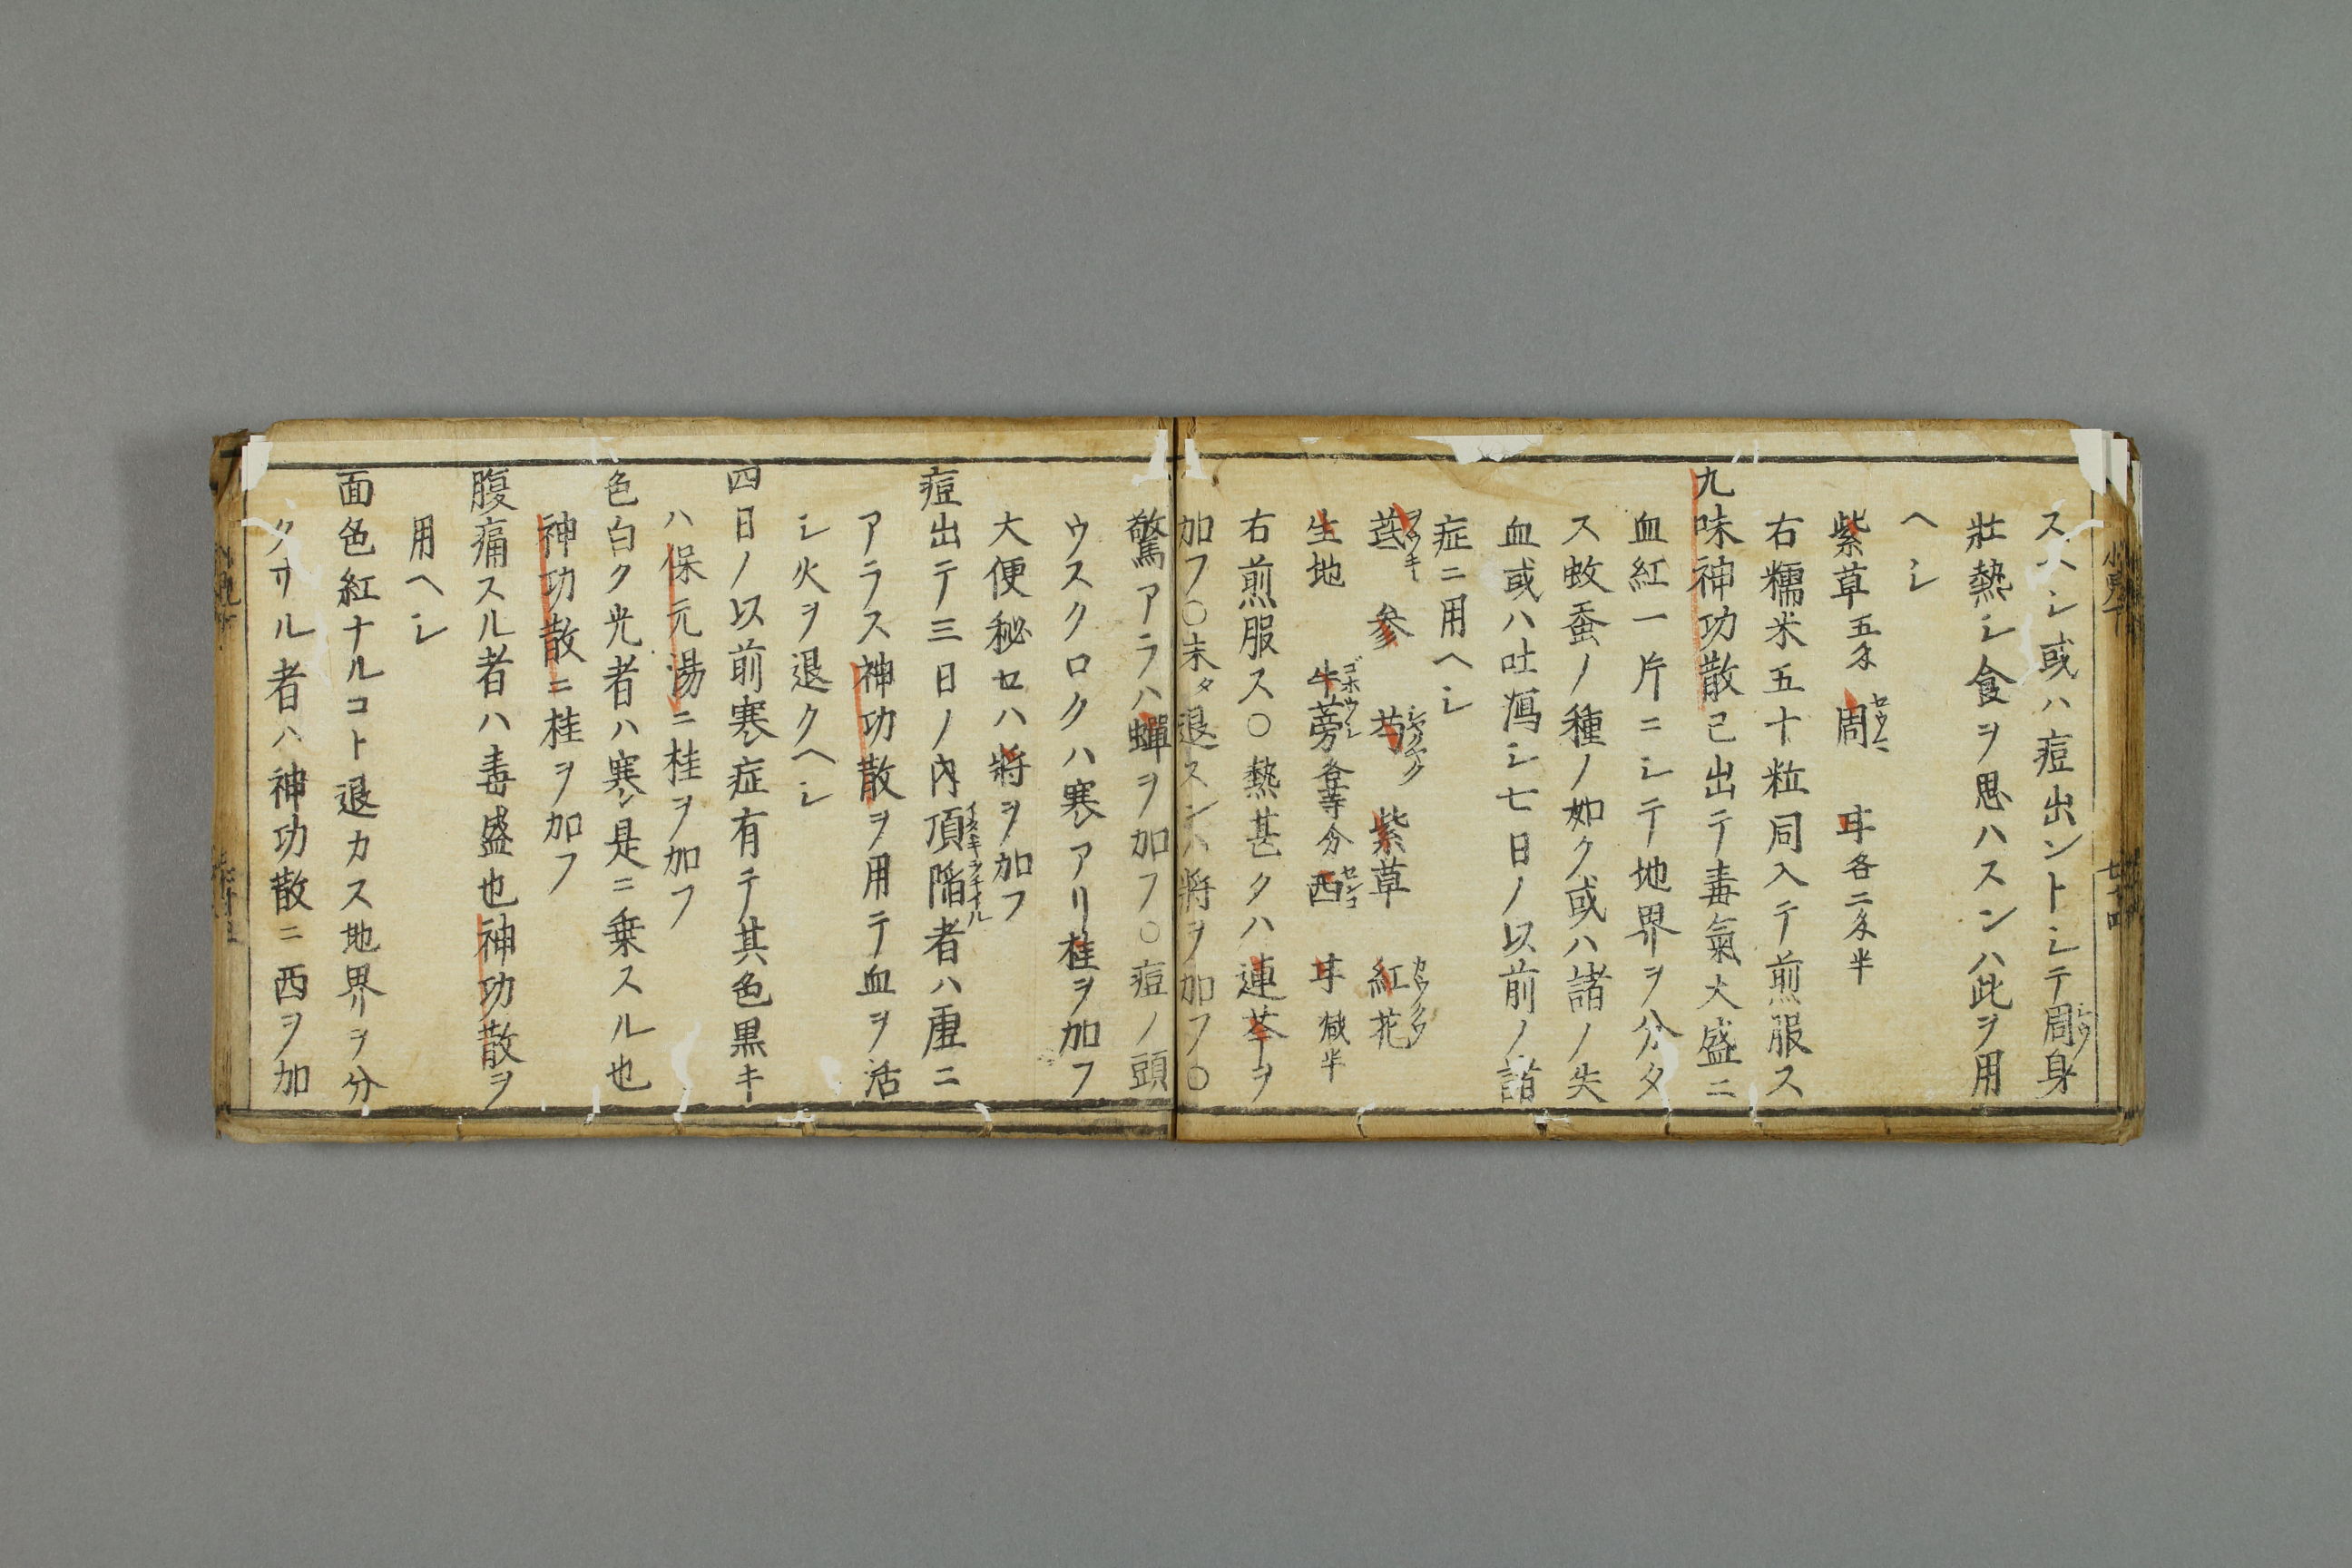 スヘシ或ハ痘出ントシテ周身
壯熱シ食ヲ思ハスンハ此ヲ用
ヘシ
紫草五匁 周 甘各二匁半
右糯米五十粒同入テ煎服ス
九味神功散已出テ毒氣大盛ニ
血紅一片ニシテ地界ヲ分タ
ス蚊蚤ノ種ノ如ク或ハ諸ノ失
血或ハ吐瀉シ七日ノ以前ノ諸
症ニ用ヘシ
芪 參 芍 紫草 紅花
生地 牛蒡各等分 西 甘减半
右煎服ス○熱甚タハ連芩ヲ
加フ○末タ退スンハ將ヲ加フ○
驚アラハ蟬ヲ加フ○痘ノ頭
ウスクロクハ寒アリ桂ヲ加フ
大便秘セハ將ヲ加フ
痘出テ三日ノ内頂陷者ハ虚ニ
アラス神功散ヲ用テ血ヲ活
シ火ヲ退クヘシ
四日ノ以前寒症有テ其色黒キ
ハ保元湯ニ桂ヲ加フ
色白ク光者ハ寒シ是ニ乗スル也
神功散ニ桂ヲ加フ
腹痛スル者ハ毒盛也神功散ヲ
用ヘシ
面色紅ナルコト退カス地界ヲ分
タサル者ハ神功散ニ西ヲ加